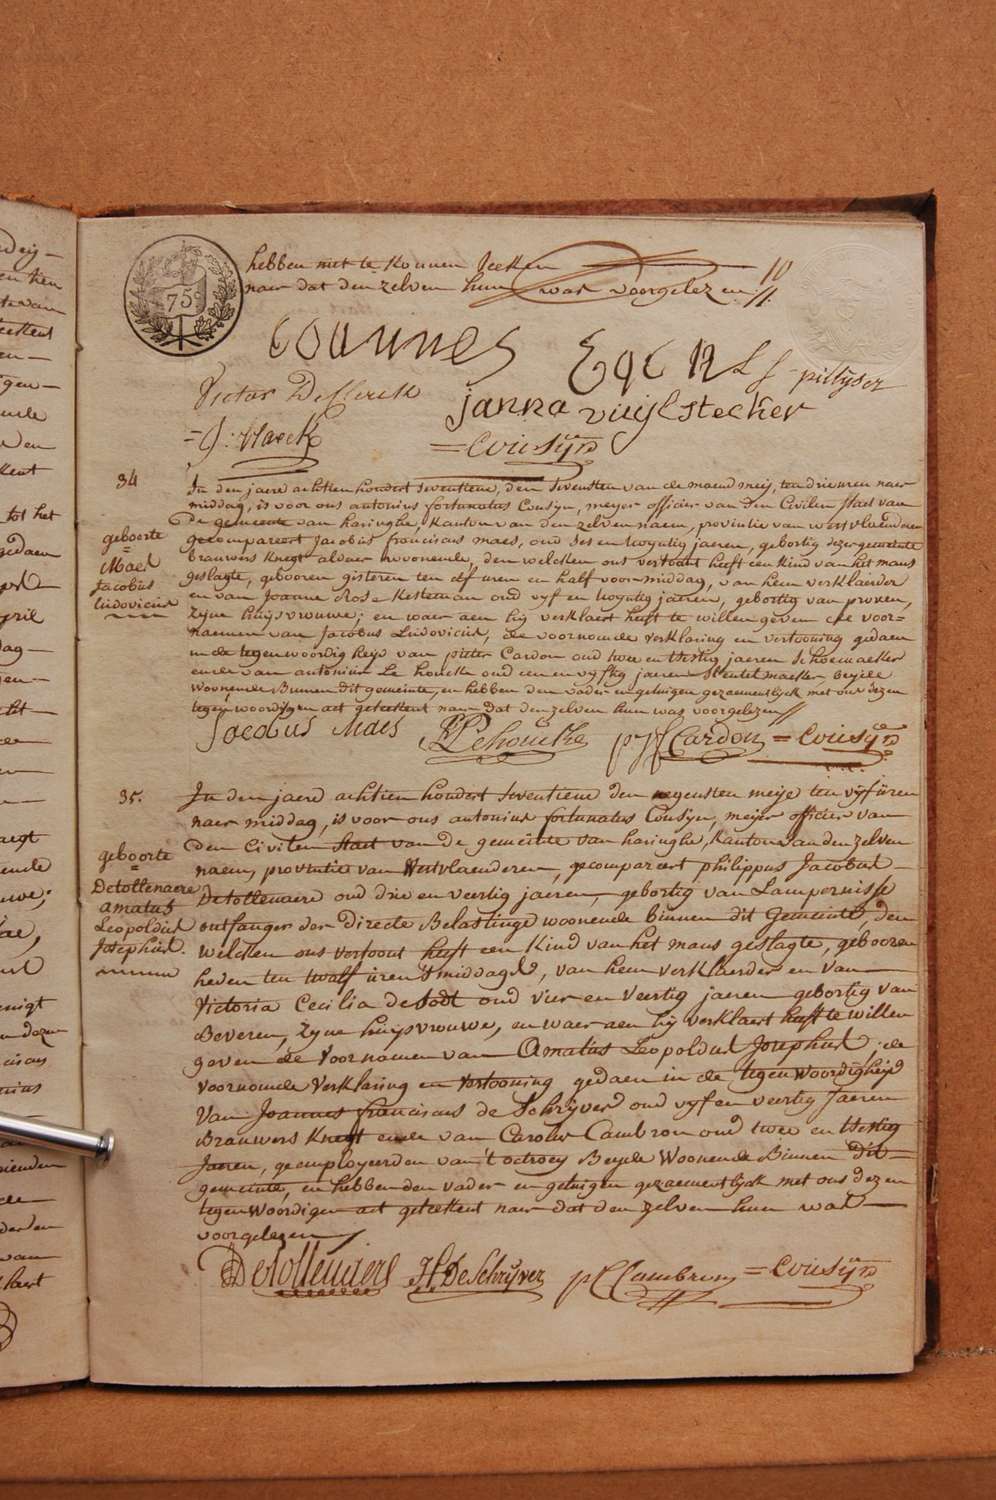 75
hebben niet te konnen teeken
naer dat den zelven hun was voorgelezen
Coannes Egen
Victor Declerck
janna vuijlstecker
Cousijn
34
In den jaere achtien hondert seventiene, den sevensten van de maend meij, ten drie uren naer
middag, is voor ons antonius fortunatus Cousijn, meyer officier van den Civilen staet van
de gemeente van haringhe, kanton van den zelven naem, provintie van westvlaenderen
gecompareert Jacobus franciscus maes, oud ses en twyntig jaeren, gebortig dezer gemeente
brauwers knegt aldaer woonende, den welcken ons vertoont heeft een kind van het mans
geslagte, gebooren gisteren ten elf uren en half voormiddag, van hem verklaerder
en van Joanne Rose Kesteman oud vyf en twyntig jaeren, gebortig van proven,
zyne huysvrouwe; en waer aen hy verklaert heeft te willen geven de voor=
naemen van Jacobus Ludovicus, de voornoemde verklaring en vertooning gedaen
in de tegenwoordigheyd van pieter Cardon oud twee en tsestig jaeren schoenmaeker
ende van antonius Le houcke oud een en vyftig jaeren sleutelmaeker, beyde
woonende Binnen dit gemeente, en hebben den vader en getuigen gezaementlyck met ons dezen
tegenwoordigen act geteekent naer dat den zelven hun was voorgelezen
geboorte
=
Maes
Jacobus
Ludovicus
Jacobus Maes Lehoucke Cardon = Cousijn
35.
In den jaere achtien hondert seventiene den negensten meije ten vyf uren
naer middag, is voor ons antonius fortunatus Cousyn, meijer officier van
den Civilen Staet van de gemeente van haringhe, Kanton van den zelven
naem, provintie van Westvlaenderen, gecompareert philippus Jacobus
Detollenaere oud drie en veertig jaeren, gebortig van Lampernisse
ontfanger der Directe Belastinge woonende binnen dit Gemeente, den
welcken ons vertoont heeft een kind van het mans geslagte, gebooren
heden ten twalf uren 's middags, van hem verklaerder en van
Victoria Cecilia de Sodt oud vier en Veertig jaeren gebortig van
Beveren, zyne huysvrouwe, en waer aen hy verklaert heeft te willen
geven de voornamen van Amatus Leopoldus Josephus, de
voornoemde verklaring en vertooning gedaen in de tegenwoordigheijd
Van Joannes franciscus de Schrijver oud vyf en veertig Jaeren
Brauwers knegt ende van Carolus Cambron oud twee en tsestig
Jaeren, geemployeerden van 't octroey Beyde Woonende Binnen dit
gemeente, en hebben den vader en getuigen gezaementlyck met ons dezen
tegenwoordigen act geteekent naer dat den zelven hun was
voorgelezen
geboorte
=
Detollenaere
Amatus
Leopoldus
Josephus.
Detollenaere DeSchrijver Cambron = Cousijn